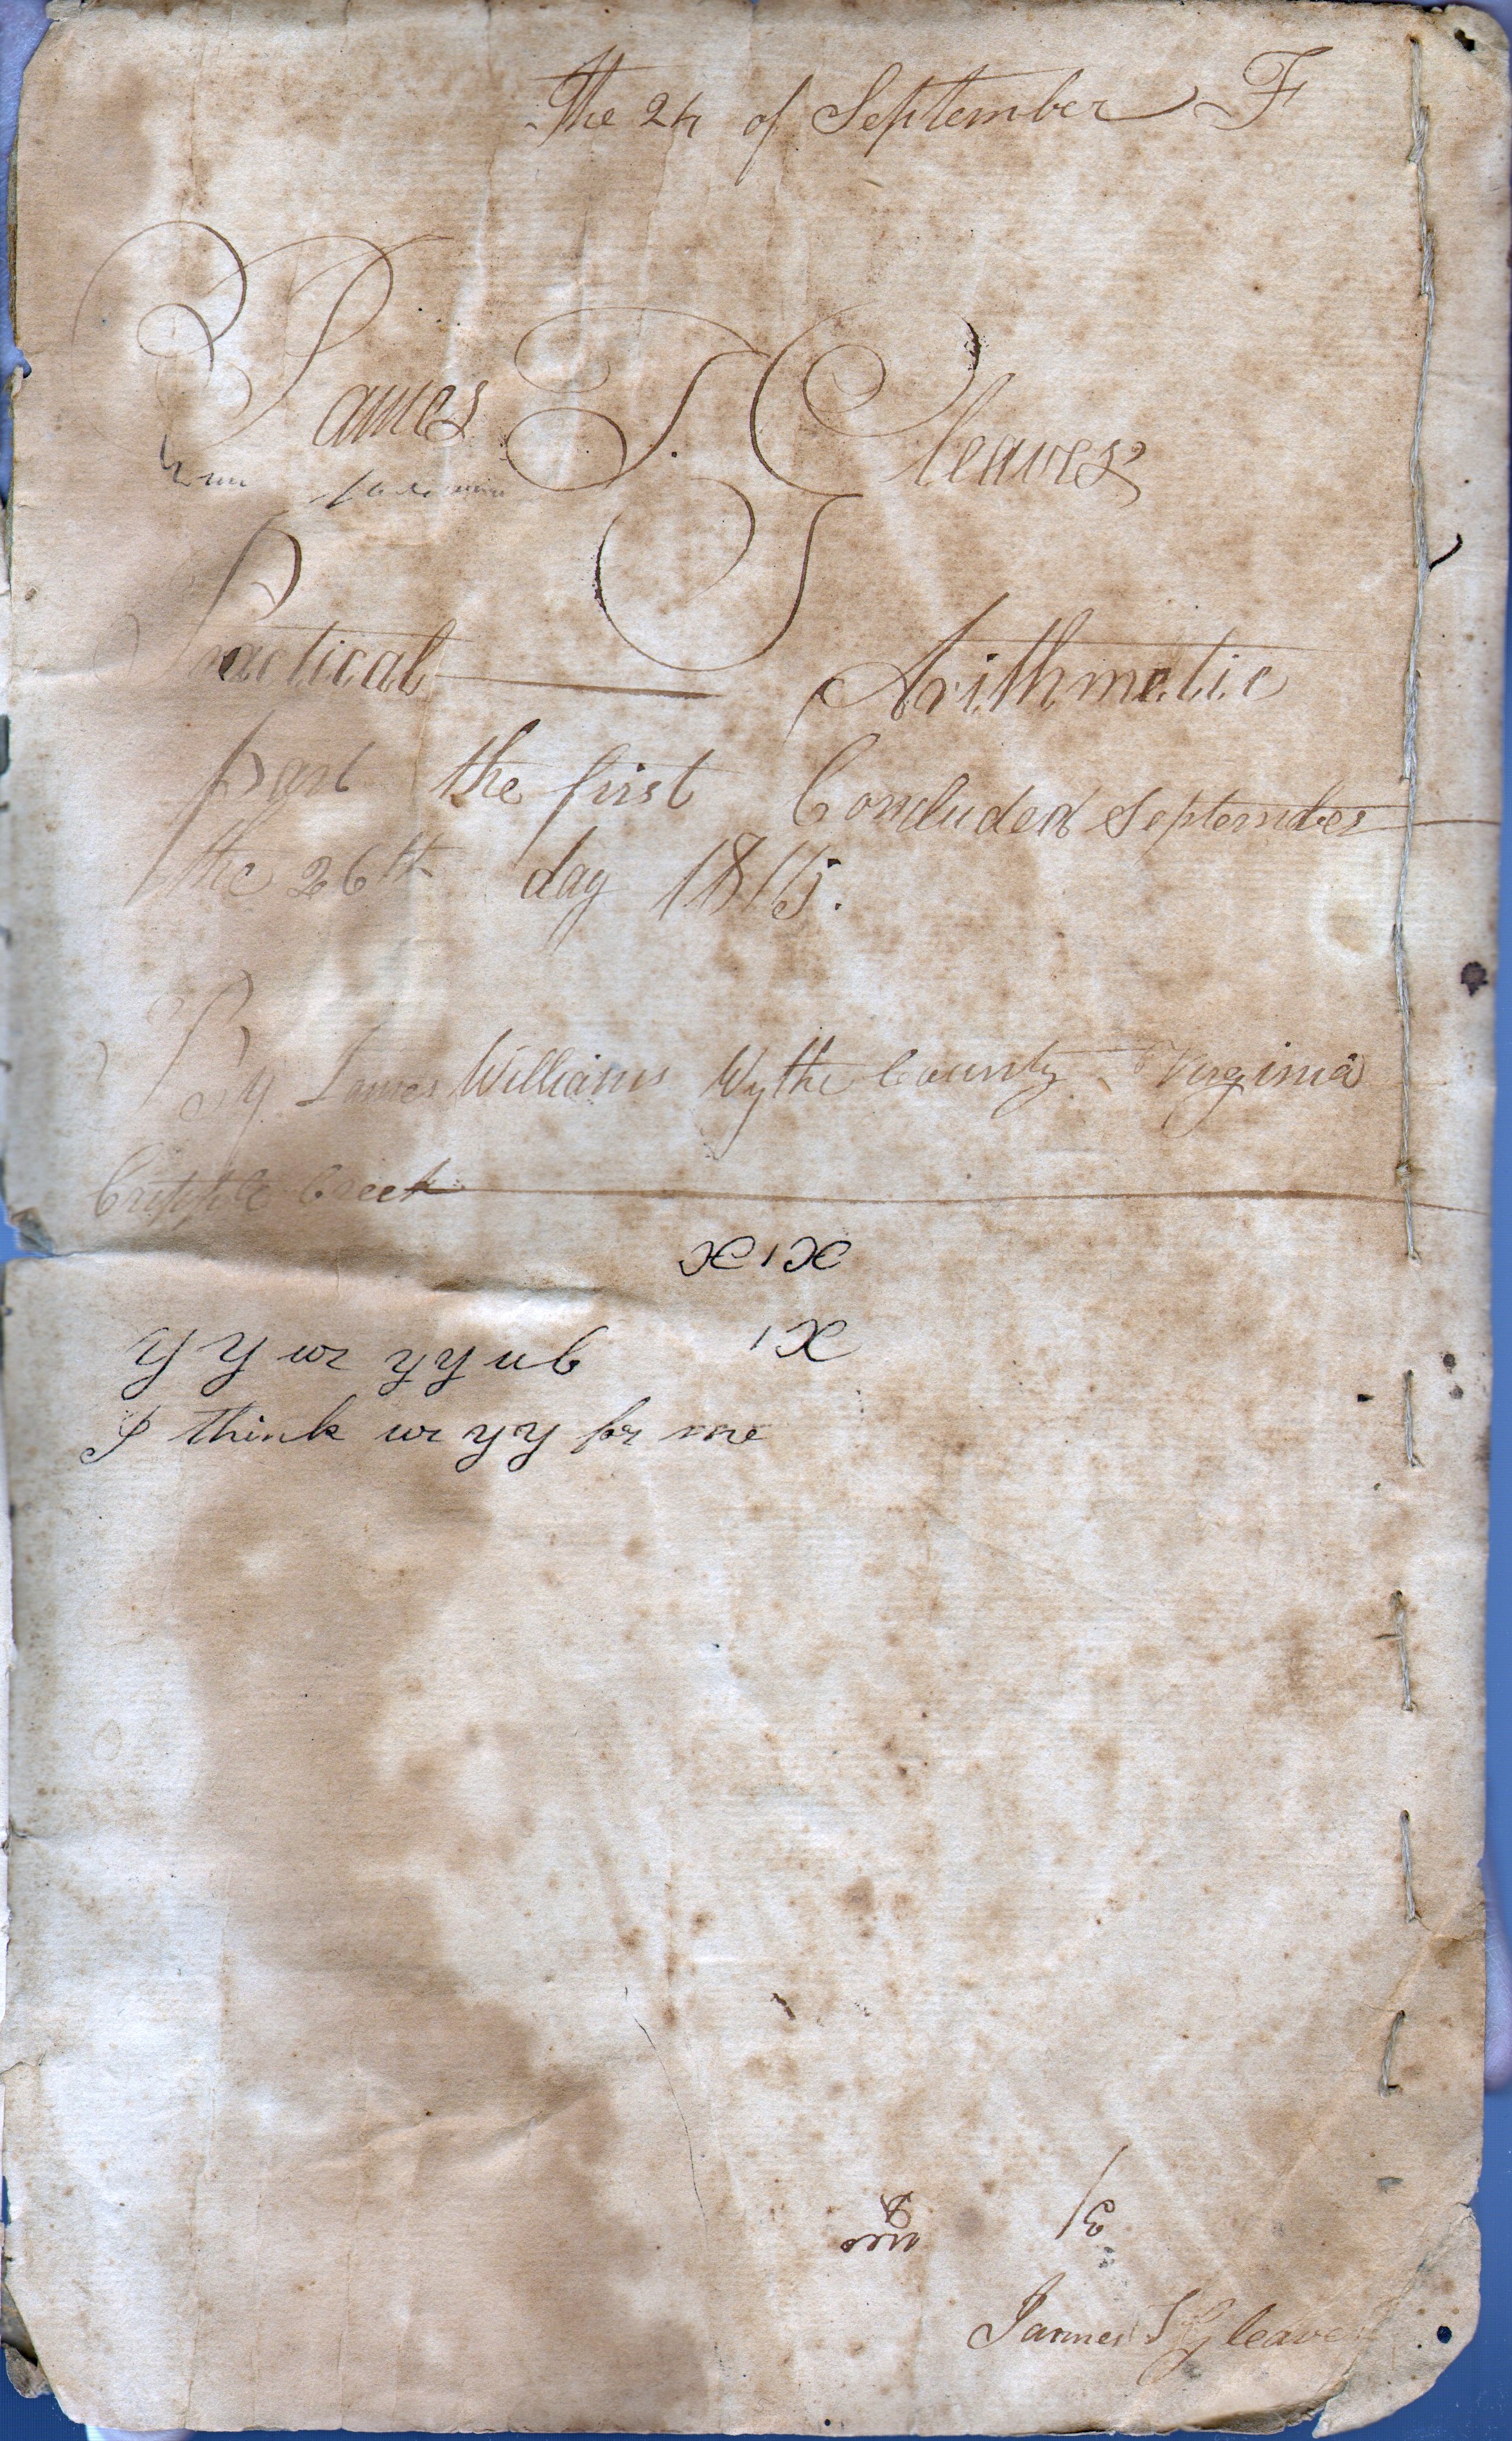 The 24 of September F
James T. Gleaves
Practical Arithmetic
part the first Concluded September
the 26th day 1815.
By James Williams Wythe County Virginia
Cripple Creek
x 1 x
1 x
y y ur y y u b
I think ur y y for me
James T Gleaves